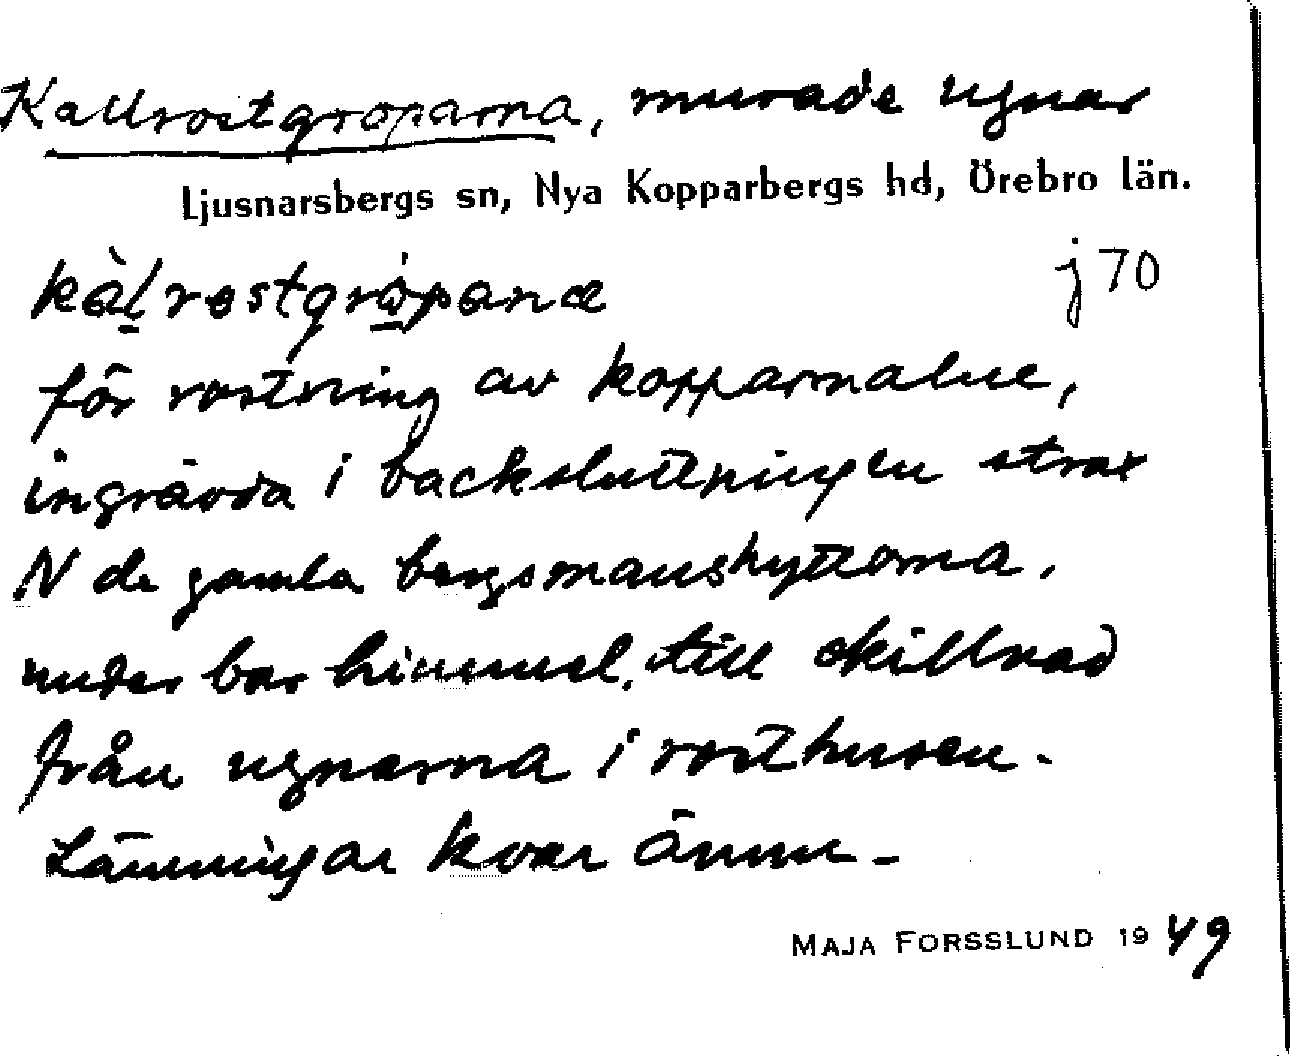 Kallrostgroparna, murade ugnar
Ljusnarsbergs sn, Nya Kopparbergs hd, Örebro län.
kàl̲rostgrò̲panæ j 70
för rostning av kopparmalme,
ingrävda i backsluttningen strax
N de gamla bergsmanshyttorna.
under bar himmel. till skillnad
från ugnarna i rosthusen.
Lämningar kvar ännu.
MAJA FORSSLUND 1949